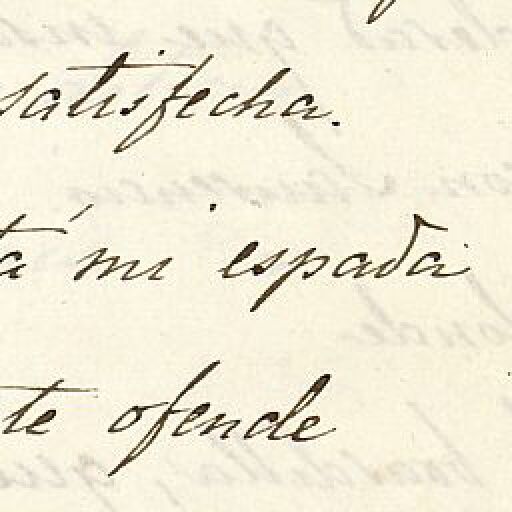 satisfecha.
tá mi espada
te ofende